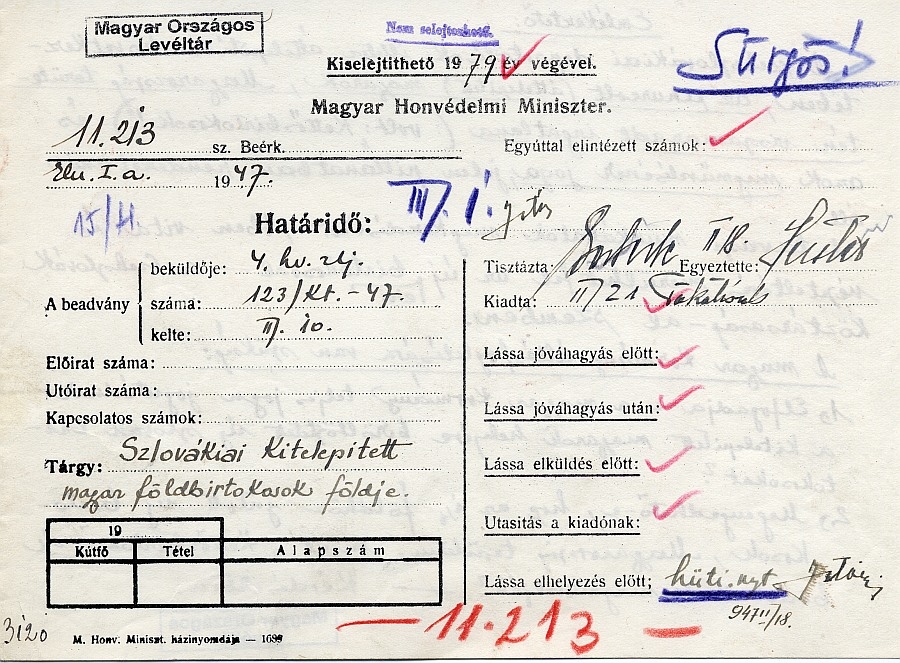 Magyar Országos
Levéltár
Nem selejtezhető.
Kiselejtithető 1979 év végével.
Sürgős!
Magyar Honvédelmi Miniszter.
11.213 sz. Beérk.
Eln. I. a. 1947.
Együttal elintézett számok:
15/II.
Határidő: III. 1.
Tisztázta: II 18. Egyeztette:
A beadvány
beküldője: 4. hv. zlj.
száma: 123/Kt.-47.
kelte: II. 10.
Kiadta: II/21
Előirat száma:
Utóirat száma:
Kapcsolatos számok:
Tárgy: Szlovákiai Kitelepitett
magyar földbirtokosok földje.
Lássa jóváhagyás előtt:
Lássa jóváhagyás után:
Lássa elküldés előtt:
Utasitás a kiadónak:
Lássa elhelyezés előtt;
19
Kútfő Tétel Alapszám
947 II/18.
3120
M. Honv. Miniszt. házinyomdája —
— 11.213 —